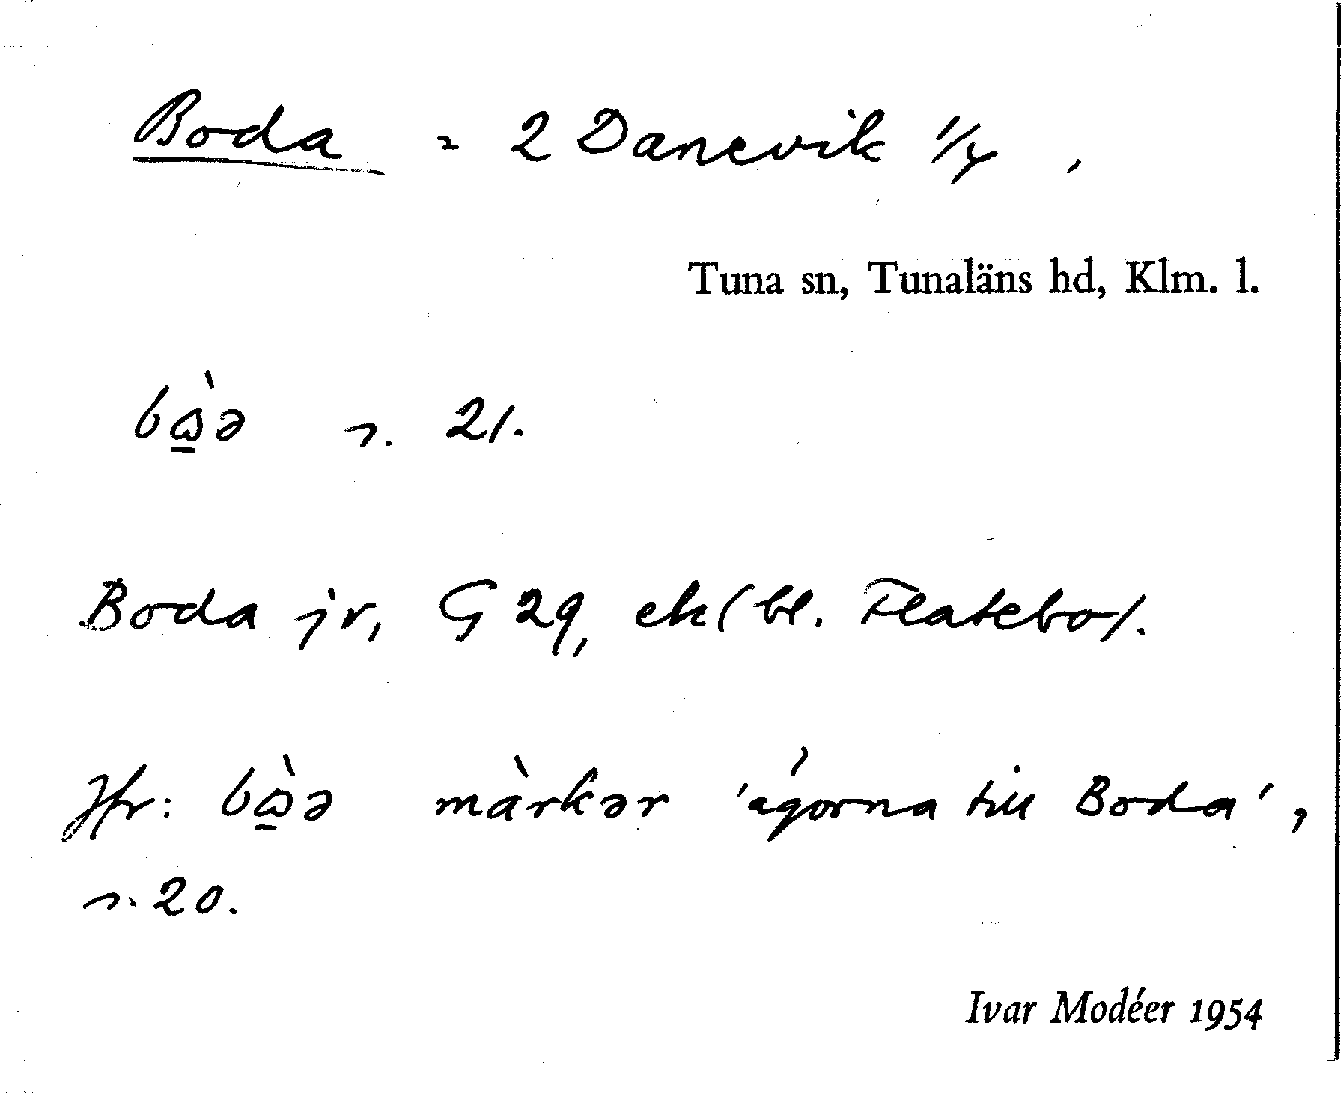 Boda = 2 Danevik 1/4,
Tuna sn, Tunaläns hd, Klm. l.
s. 21.
Boda jr, G 29, ek (bl. Flatebo).
Jfr: màrkər 'ägorna till Boda',
s. 20.
Ivar Modéer 1954